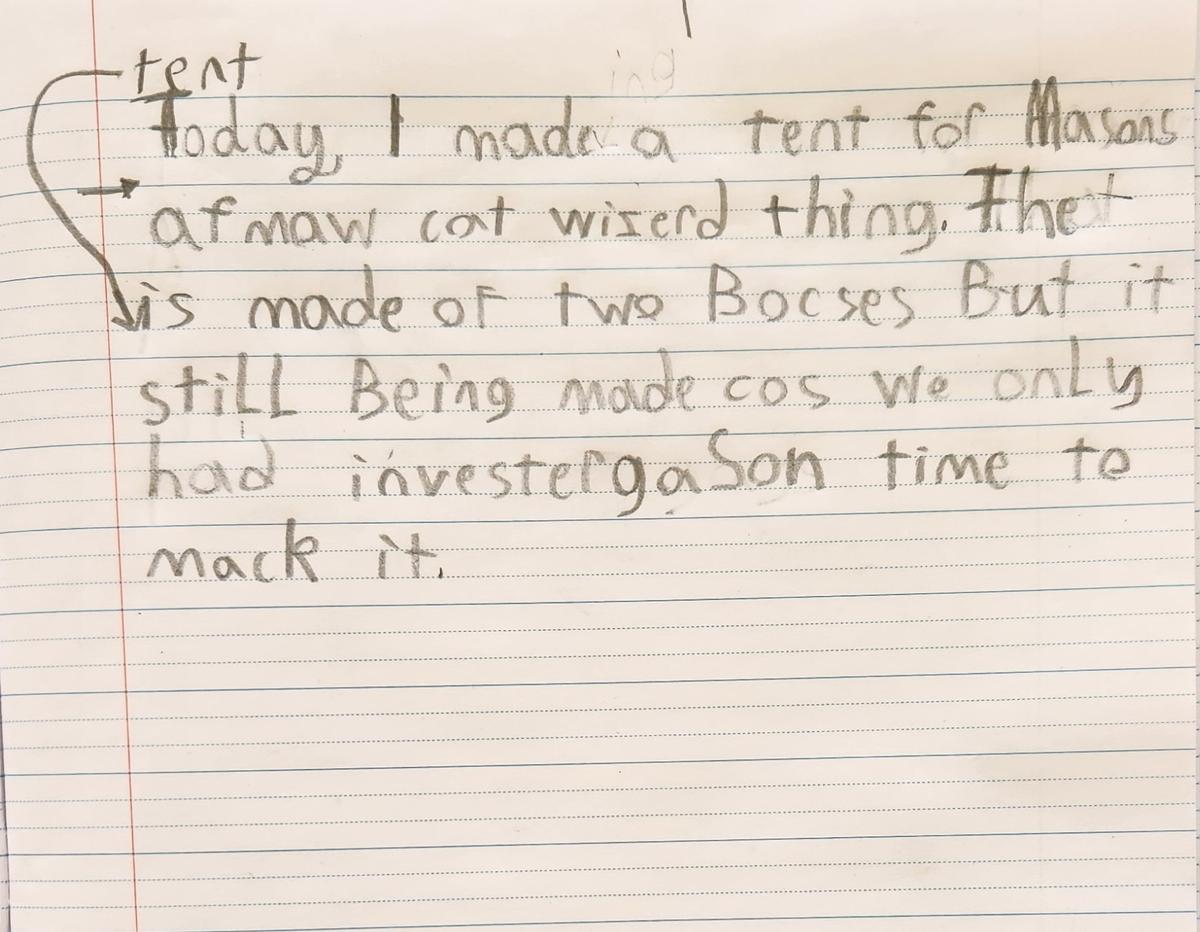 tent
Today, I made a tent for Masons
afmaw cat wizerd thing. The
is made of two Bocses But it
still Being made cos we only
had investergason time to
mack it.